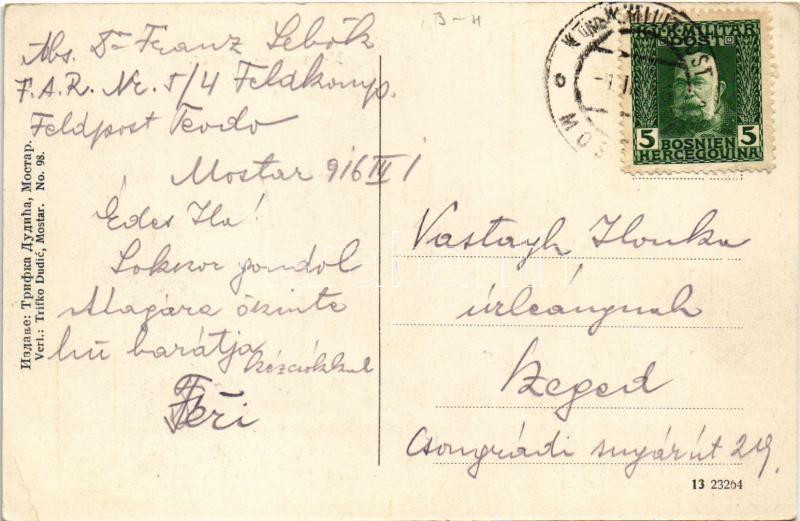 B-H
Abs. Dr Franz Lebók
F.A.R. Nr. 5/4 Feldkomp.
Feldpost Teodo
Mostar 916 III 1
Édes Ila!
Sokszor gondol
Magára őszinte
hű barátja
kézcsókkal
Feri
Vastagh Ilonka
úrleánynak
Szeged
Csongrádi sugárút 29.
K.u.K. MILITÄR
POST
5 5
BOSNIEN
HERCEGOVINA
Издање: Трифка Дудића, Мостар.
Verl.: Trifko Dudić, Mostar. No. 98.
13 23264